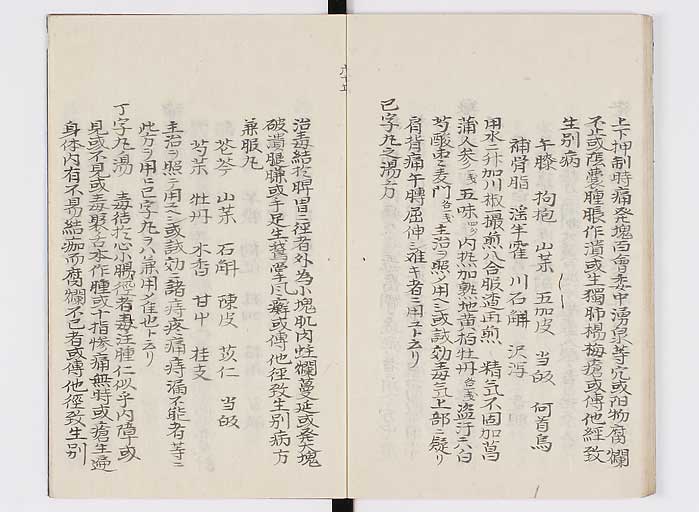 上下抑制時痛発塊百會委中湧泉等穴或陰物腐爛
不止或陰嚢腫脹作潰或生獨肺楊梅瘡或傳他經致
生別病
午膝 拘抱 山茱 五加皮 当皈 何首烏
補骨脂 淫羊霍 川石斛 沢瀉
用水二升加川椒一撮煎八合服渣再煎 精気不固加菖
蒲人参各一戔五味内熱加熟地黄牡丹各一戔盗汗
芍酸枣麦門 主治ヲ照ソ用ヘシ或試効毒気上部ニ凝リ
肩背痛午膊屈伸シ难キ者ニ用ユト云リ
己字丸之湯方
治毒結於脾胃二径者外為小塊肌肉炷爛蔓延或発大塊
破潰腿臁或手足生鵞掌風癬或傳他径致生別病方
兼服丸
芩 山茱 石斛 陳皮 苡仁 当皈
芍 牡丹 木香 甘中 桂支
主治ヲ照シテ用ユヘシ或試効ニ諸痔疼痛痔漏不能者等ニ
此方ヲ用ヒ己字丸ヲハ兼用シ难也ト云リ
丁字丸湯 毒結於心小腸径者毒注腫仁似乎内障或
見或不見或毒聚舌本作腫或十指惨痛無時或瘡生遍
身体内有不易結痂而腐爛不已者或傳他徑致生別